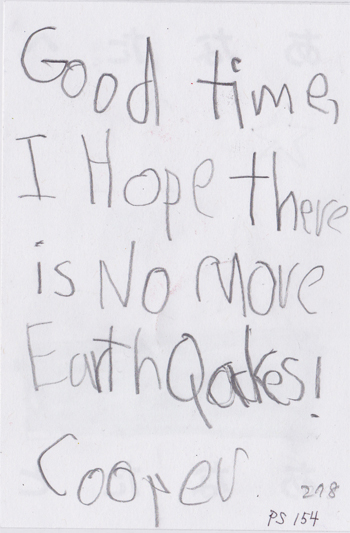 Good time,
I Hope there
is No More
EarthQuakes!
Cooper
218
PS 154